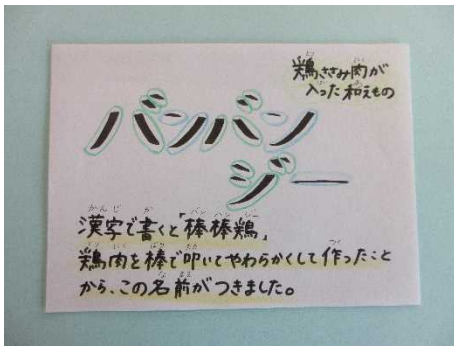 鶏ささみ肉が
入った和えもの
バンバン
ジー
漢字で書くと「棒棒鶏」
鶏肉を棒で叩いてやわらかくして作ったこと
から、この名前がつきました。